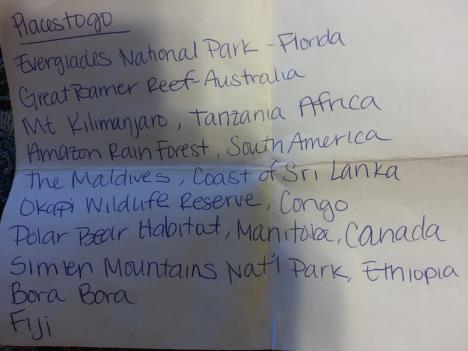 Places to go
Everglades National Park - Florida
Great Barrier Reef - Australia
Mt Kilimanjaro, Tanzania Africa
Amazon Rain Forest, South America
The Maldives, Coast of Sri Lanka
Okapi Wildlife Reserve, Congo
Polar Bear Habitat, Manitoba, Canada
Simien Mountains Nat'l Park, Ethiopia
Bora Bora
Fiji